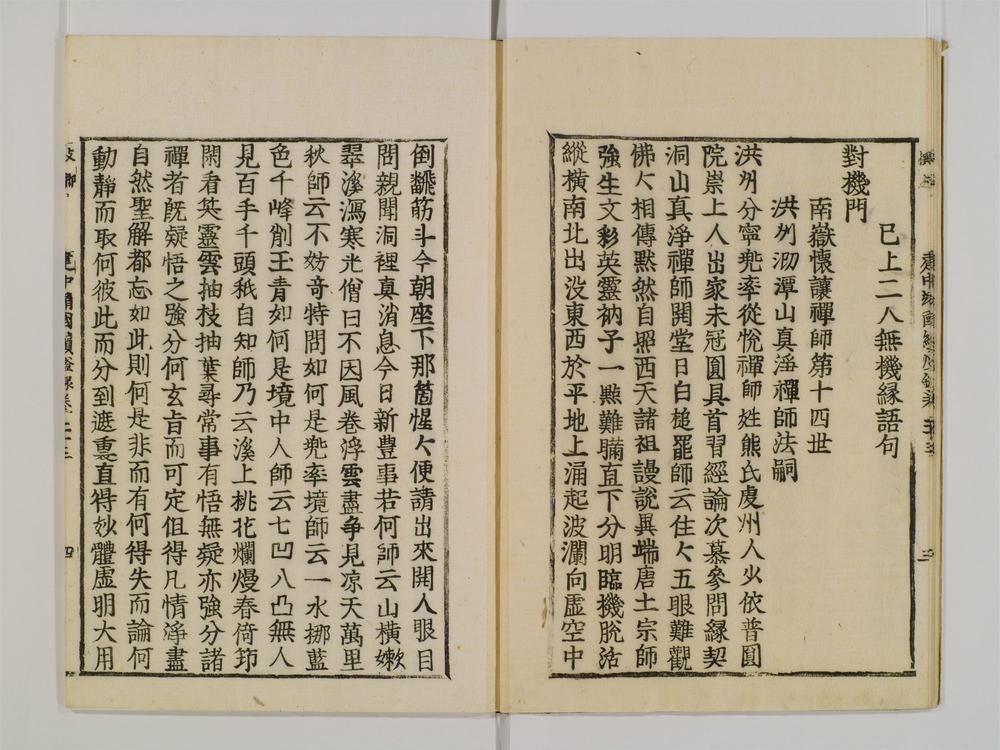 已上二人無機縁語句
對機門
南嶽懷讓禪師第十四世
洪州泐潭山真淨禪師法嗣
洪州分寧兠率從恱禪師姓熊氏虔州人少依普圓
院崇上人出家未冠圓具首習經論次慕參問緣契
洞山真淨禪師開堂日白槌罷師云住〻五眼難觀
佛〻相傳黙然自照西天諸祖謾說異端唐土宗師
強生文彩英靈衲子一㸃難瞞直下分明臨機脫活
縱橫南北出没東西於平地上涌起波瀾向虛空中
倒飜筋斗今朝座下那箇惺〻便請出來開人眼目
問親聞洞裡真消息今日新豐事若何師云山橫嫩
翠溪瀉寒光僧曰不因風卷浮雲盡争見凉天萬里
秋師云不妨奇特問如何是兠率境師云一水挪藍
色千峰削玉青如何是境中人師云七凹八凸無人
見百手千頭秖自知師乃云溪上桃花爛熳春倚筇
閑看𥬇靈雲抽枝抽葉尋常事有悟無疑亦強分諸
禪者旣疑悟之強分何玄旨而可定但得凡情淨盡
自然聖解都忘如此則何是非而有何得失而論何
動靜而取何彼此而分到遮裏直得妙體虛明大用
建中靖國續燈録卷二十三
四